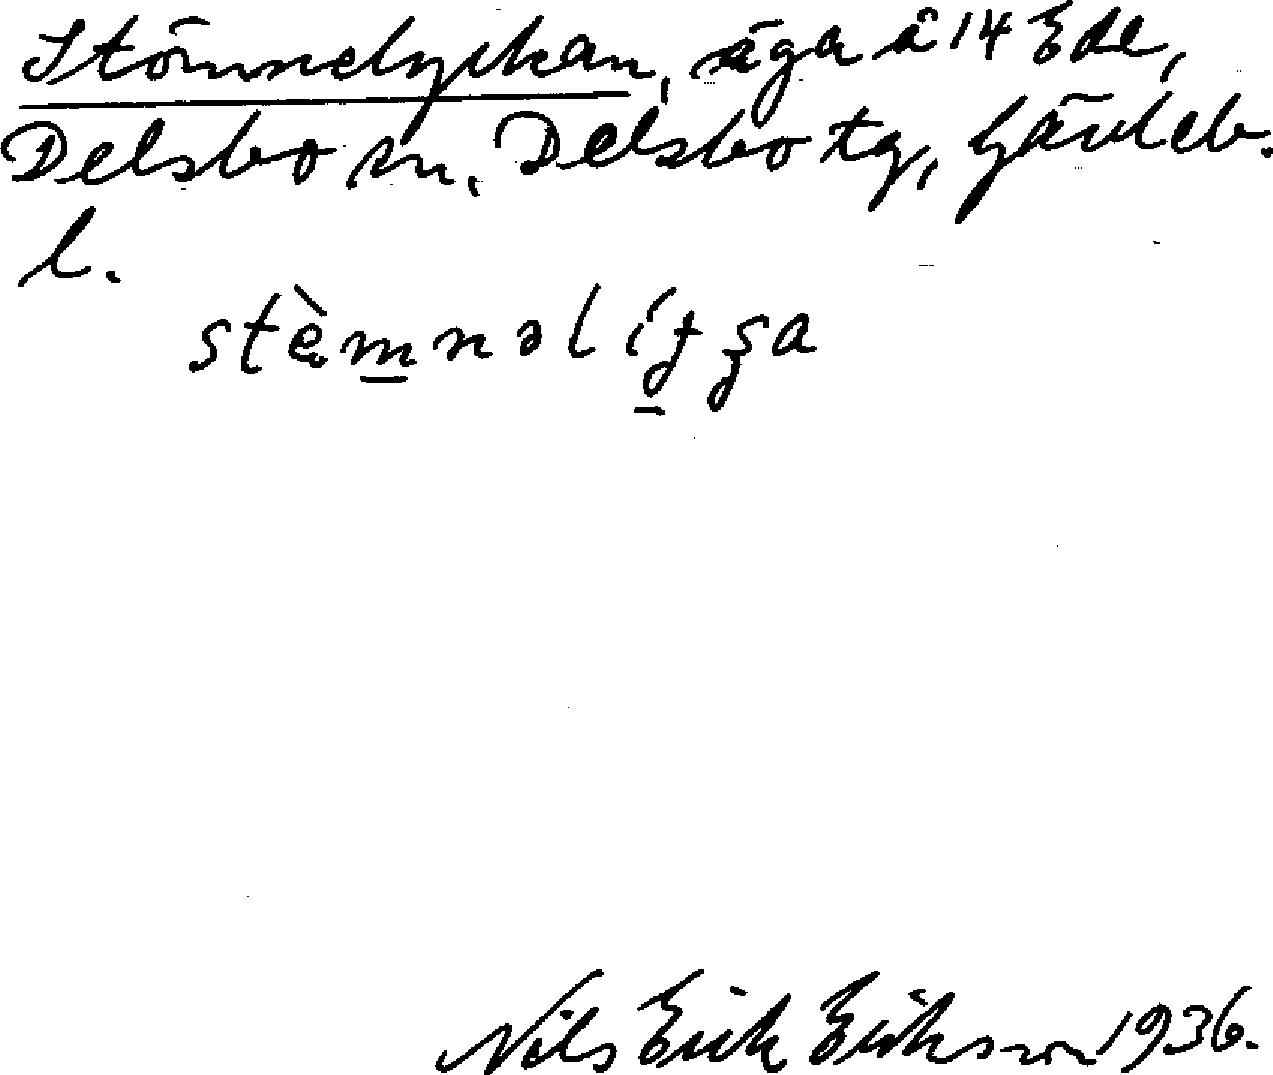 Stömnelyckan, äga å 14 Ede,
Delsbo sn, Delsbo tg, Gävleb.
l.
stè̀m̲nəlíţşa
Nils Erik Eriksson 1936.